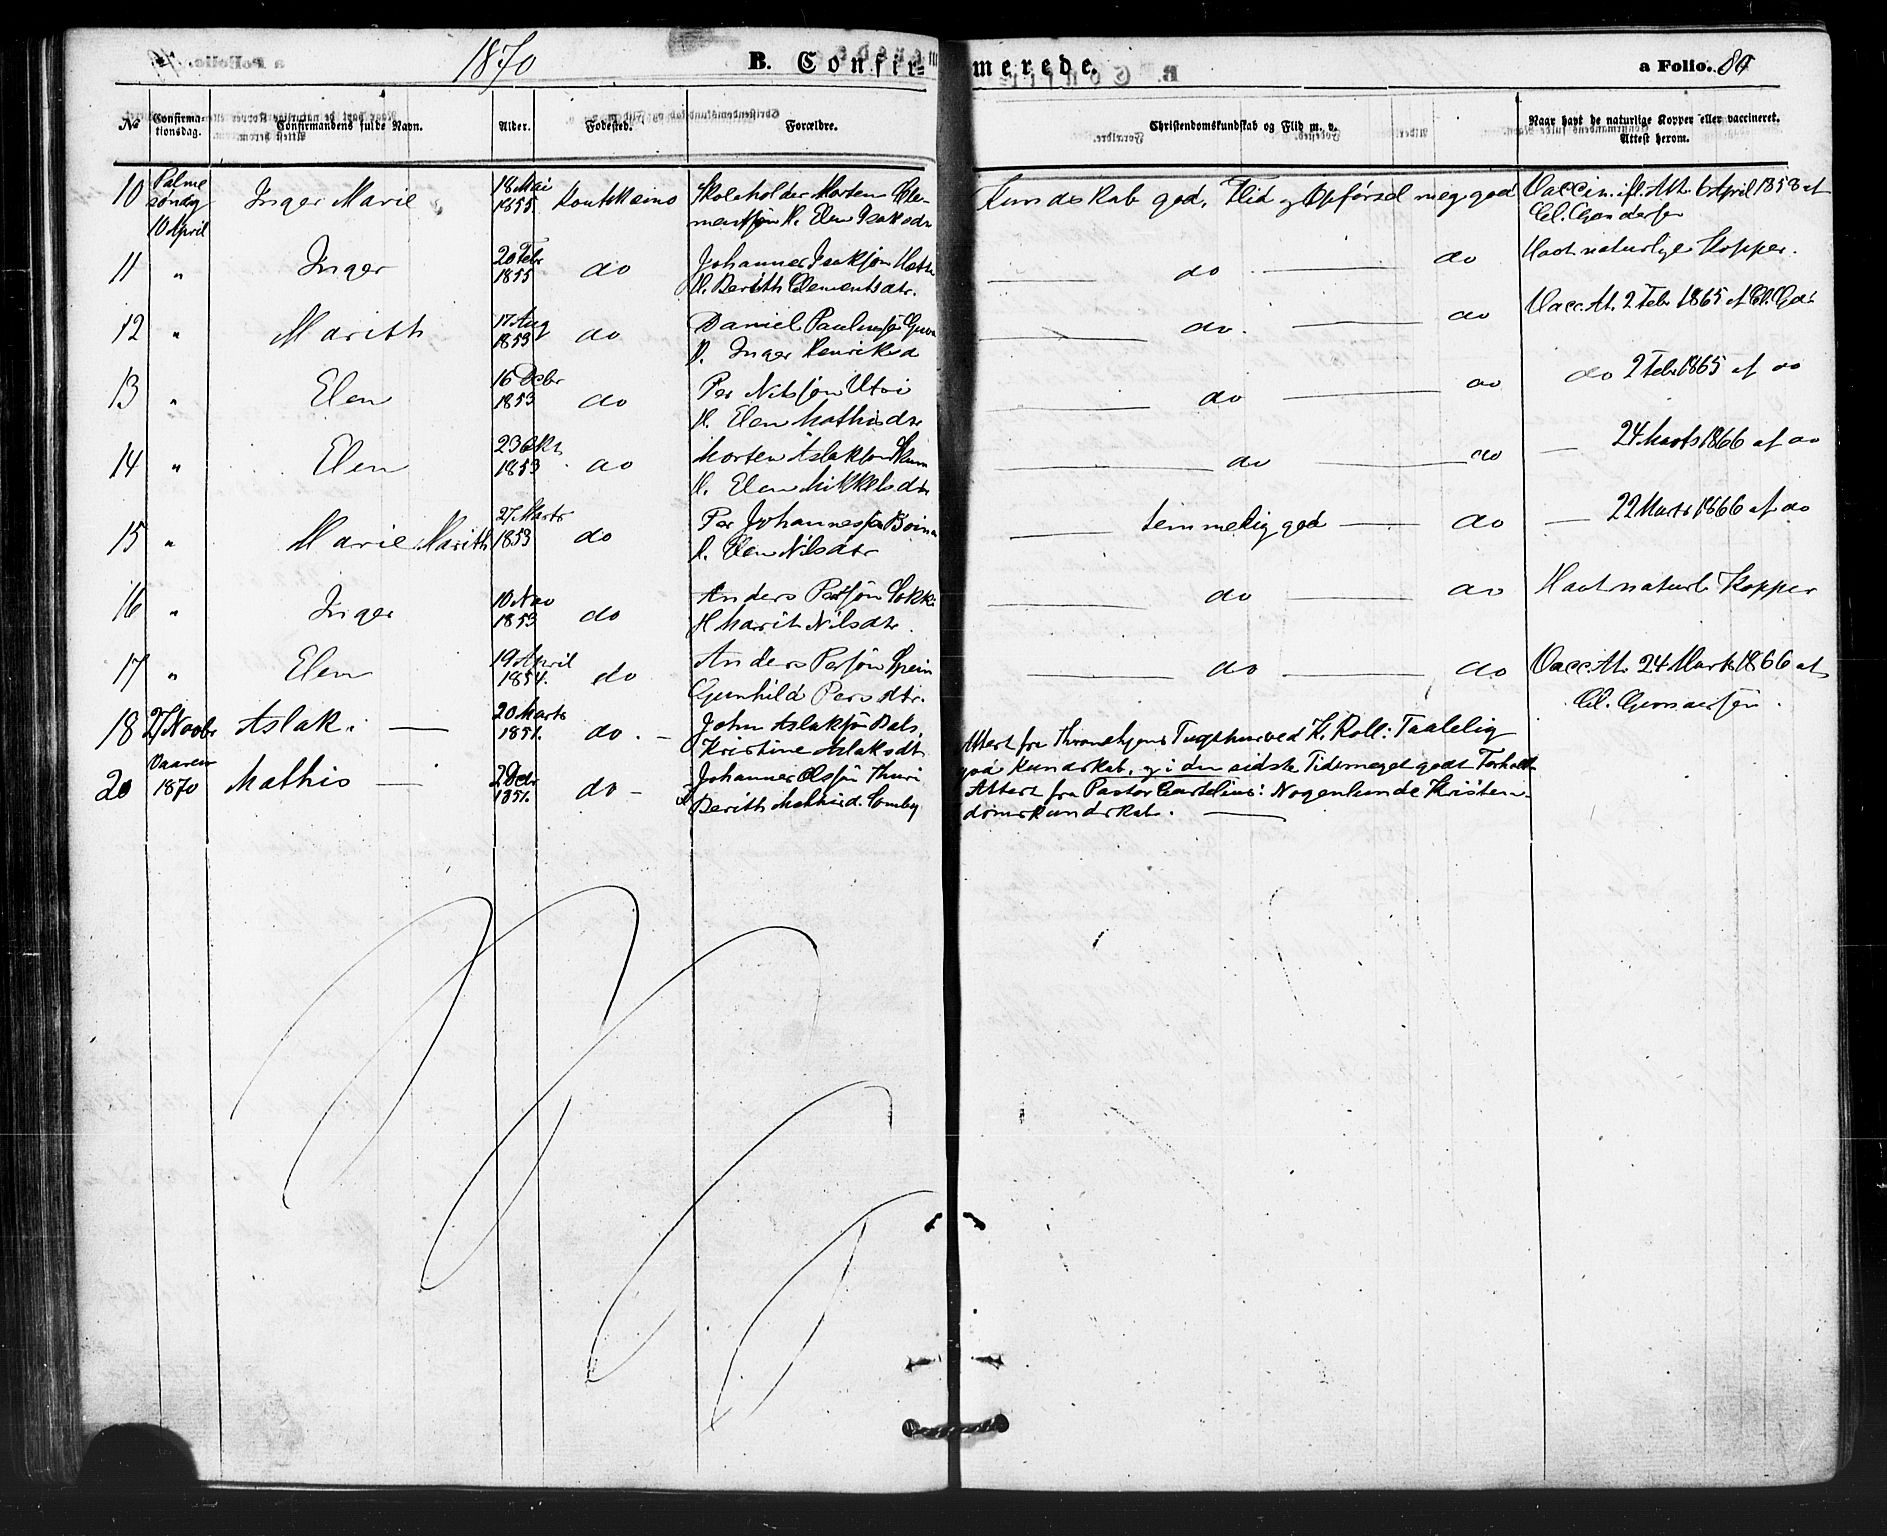 1870 B. Confir- merede. a Folio. 80
No Confirma-tionsdag. Confirmandens fulde Navn. Alder. Fødested. Forældre. Christendomskundskab og Flid m. v. Naar havt de naturlige Kopper eller vaccineret. Attest herom.
10 Palme søndag 10 April Inger Marie 18 Mai 1855 Koutokeino Skoleholder Morten Cle-
mentsøn H. Elen Isaksdr Kundskab god, Flid og Opførsel meg. god Vaccin. ifl. Att. 6 April 1858 af
Cl. Gundersen
11 " Inger 20 Febr 1855 do Johannes Isaksøn Hætta
H. Berith Clementsdtr. do do Havt naturlige Kopper.
12 " Marith 17 Aug 1853 do Daniel Paulusen
H. Inger Henriksd do. do Vacc. At. 2 Feb 1865 af Cl. Gds
13 " Elen 16 Debr 1853 do Per Nilsøn Utsi
H. Elen Mathisdtr do do do 2 Feb 1865 af do
14 " Elen 23 Okt 1853 do Morten Aslaksøn
H. Elen Mikkelsdtr do do — 24 Marts 1866 af do
15 " Marie Marith 27 Marts 1853 do Per Johannesen
H. Elen Nilsdtr temmelig god do — 22 Marts 1866 af do
16 " Inger 10 Nov 1853 do Anders Persøn Sokki
H Marit Nilsdtr. do do Havt naturl. Kopper
17 " Elen 19 April 1854. do Anders Persøn
Gunhild Persdtr. do do Vacc. At. 24 Marts 1866 af
Cl. Gundersen.
18 27 Novbr Aslak. — 20 Marts 1851. do. — John Aslaksøn Bals.
Kristine Aslaksdt Attest fra Throndhjems Tugthus ved K. Roll: Taalelig
god Kundskab, og i den sidste Tid meget godt Forhold
20 Vaaren 1870 Mathis — 2 Debr 1851. do — Johannes Olsøn Thuri
Berith Mathisd. Somby Attest fra Pastor: Nogenlunde Kristen-
domskundskab. —